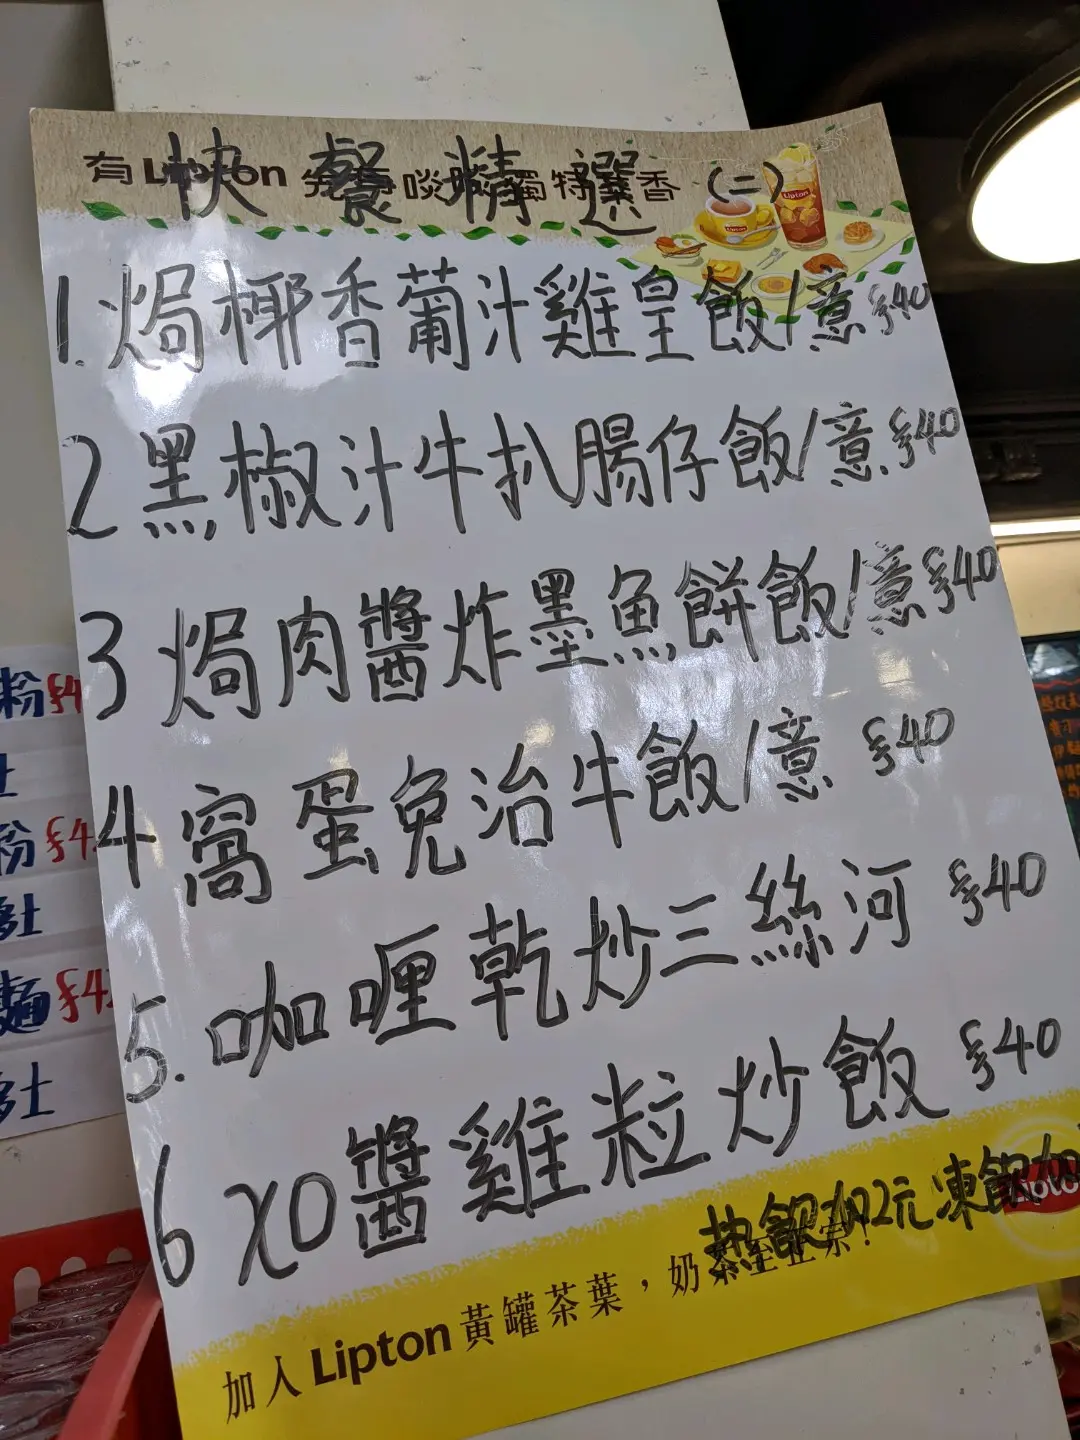 有Lipton 啖 獨特 香
快餐精選(二)
1.焗椰香葡汁雞皇飯/意 $40
2 黑椒汁牛扒腸仔飯/意 $40
3 焗肉醬炸墨魚餅飯/意 $40
4 窩蛋免治牛飯/意 $40
5.咖喱乾炒三絲河 $40
6 XO醬雞粒炒飯 $40
热飲加2元 凍飲加
加入Lipton黃罐茶葉，奶茶至正宗！
Lipton
Lipton
粉$4
士
粉$4
多士
麵$4
多士